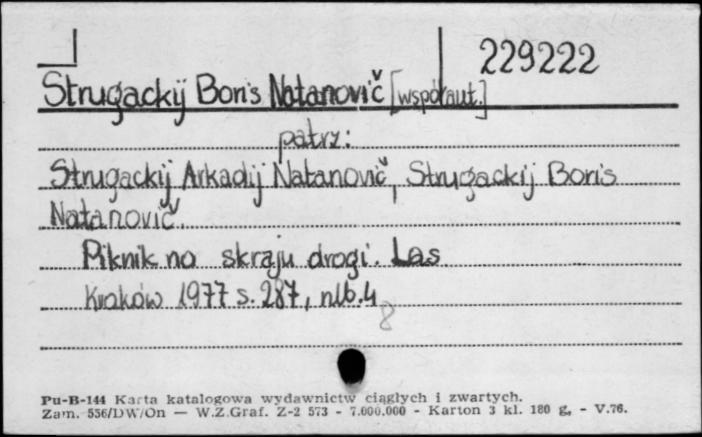 229222
Strugackij Boris Natanovič [współaut.]
patrz:
Strugackij Arkadij Natanovič, Strugackij Boris
Natanovič.
Piknik na skraju drogi. Las
Kraków 1977 s. 287, nlb. 4
8
Pu-B-144 Karta katalogowa wydawnictw ciągłych i zwartych.
Zam. 536/DW/On — W.Z.Graf. Z-2 573 - 7.000.000 - Karton 3 kl. 180 g, - V.76.